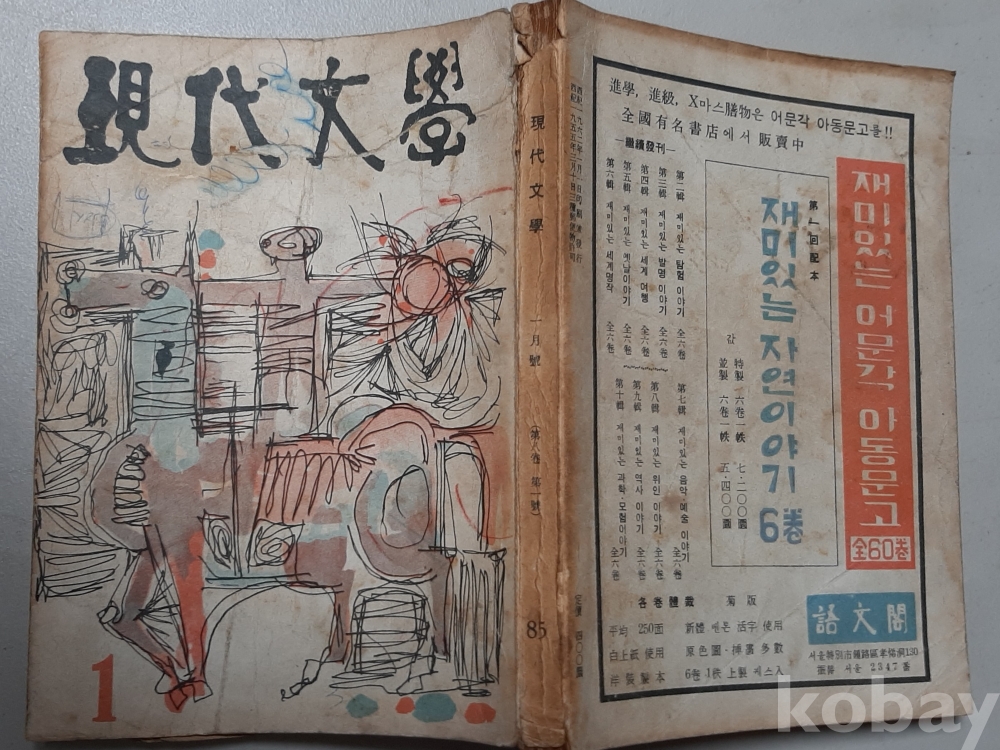 現代文學
1
現代文學 一月號 (第八卷 第一號) 85
進學, 進級, X마스膳物은 어문각 아동문고를!!
全國有名書店에서 販賣中
—繼續發刊—
재미있는 어문각 아동문고
全60巻
第一回配本
재미있는 자연이야기 6巻
값
特製 六卷一帙 七·二〇〇圜
並製 六卷一帙 五·四〇〇圜
第二輯 재미있는 탐험 이야기 全六卷
第三輯 재미있는 발명 이야기 全六卷
第四輯 재미있는 세계 여행 全六卷
第五輯 재미있는 옛날이야기 全六卷
第六輯 재미있는 세계명작 全六卷
第七輯 재미있는 음악·예술 이야기 全六卷
第八輯 재미있는 위인 이야기 全六卷
第九輯 재미있는 역사 이야기 全六卷
第十輯 재미있는 과학·모험이야기 全六卷
各卷體裁 菊版
平均 250面 新體 벤톤 活字 使用
白上紙 使用 原色圖·挿畵 多數
洋裝製本 6卷 1帙 上製 케스入
語文閣
서울特別市鍾路區孝悌洞130
振替 서울 2347番
kobay